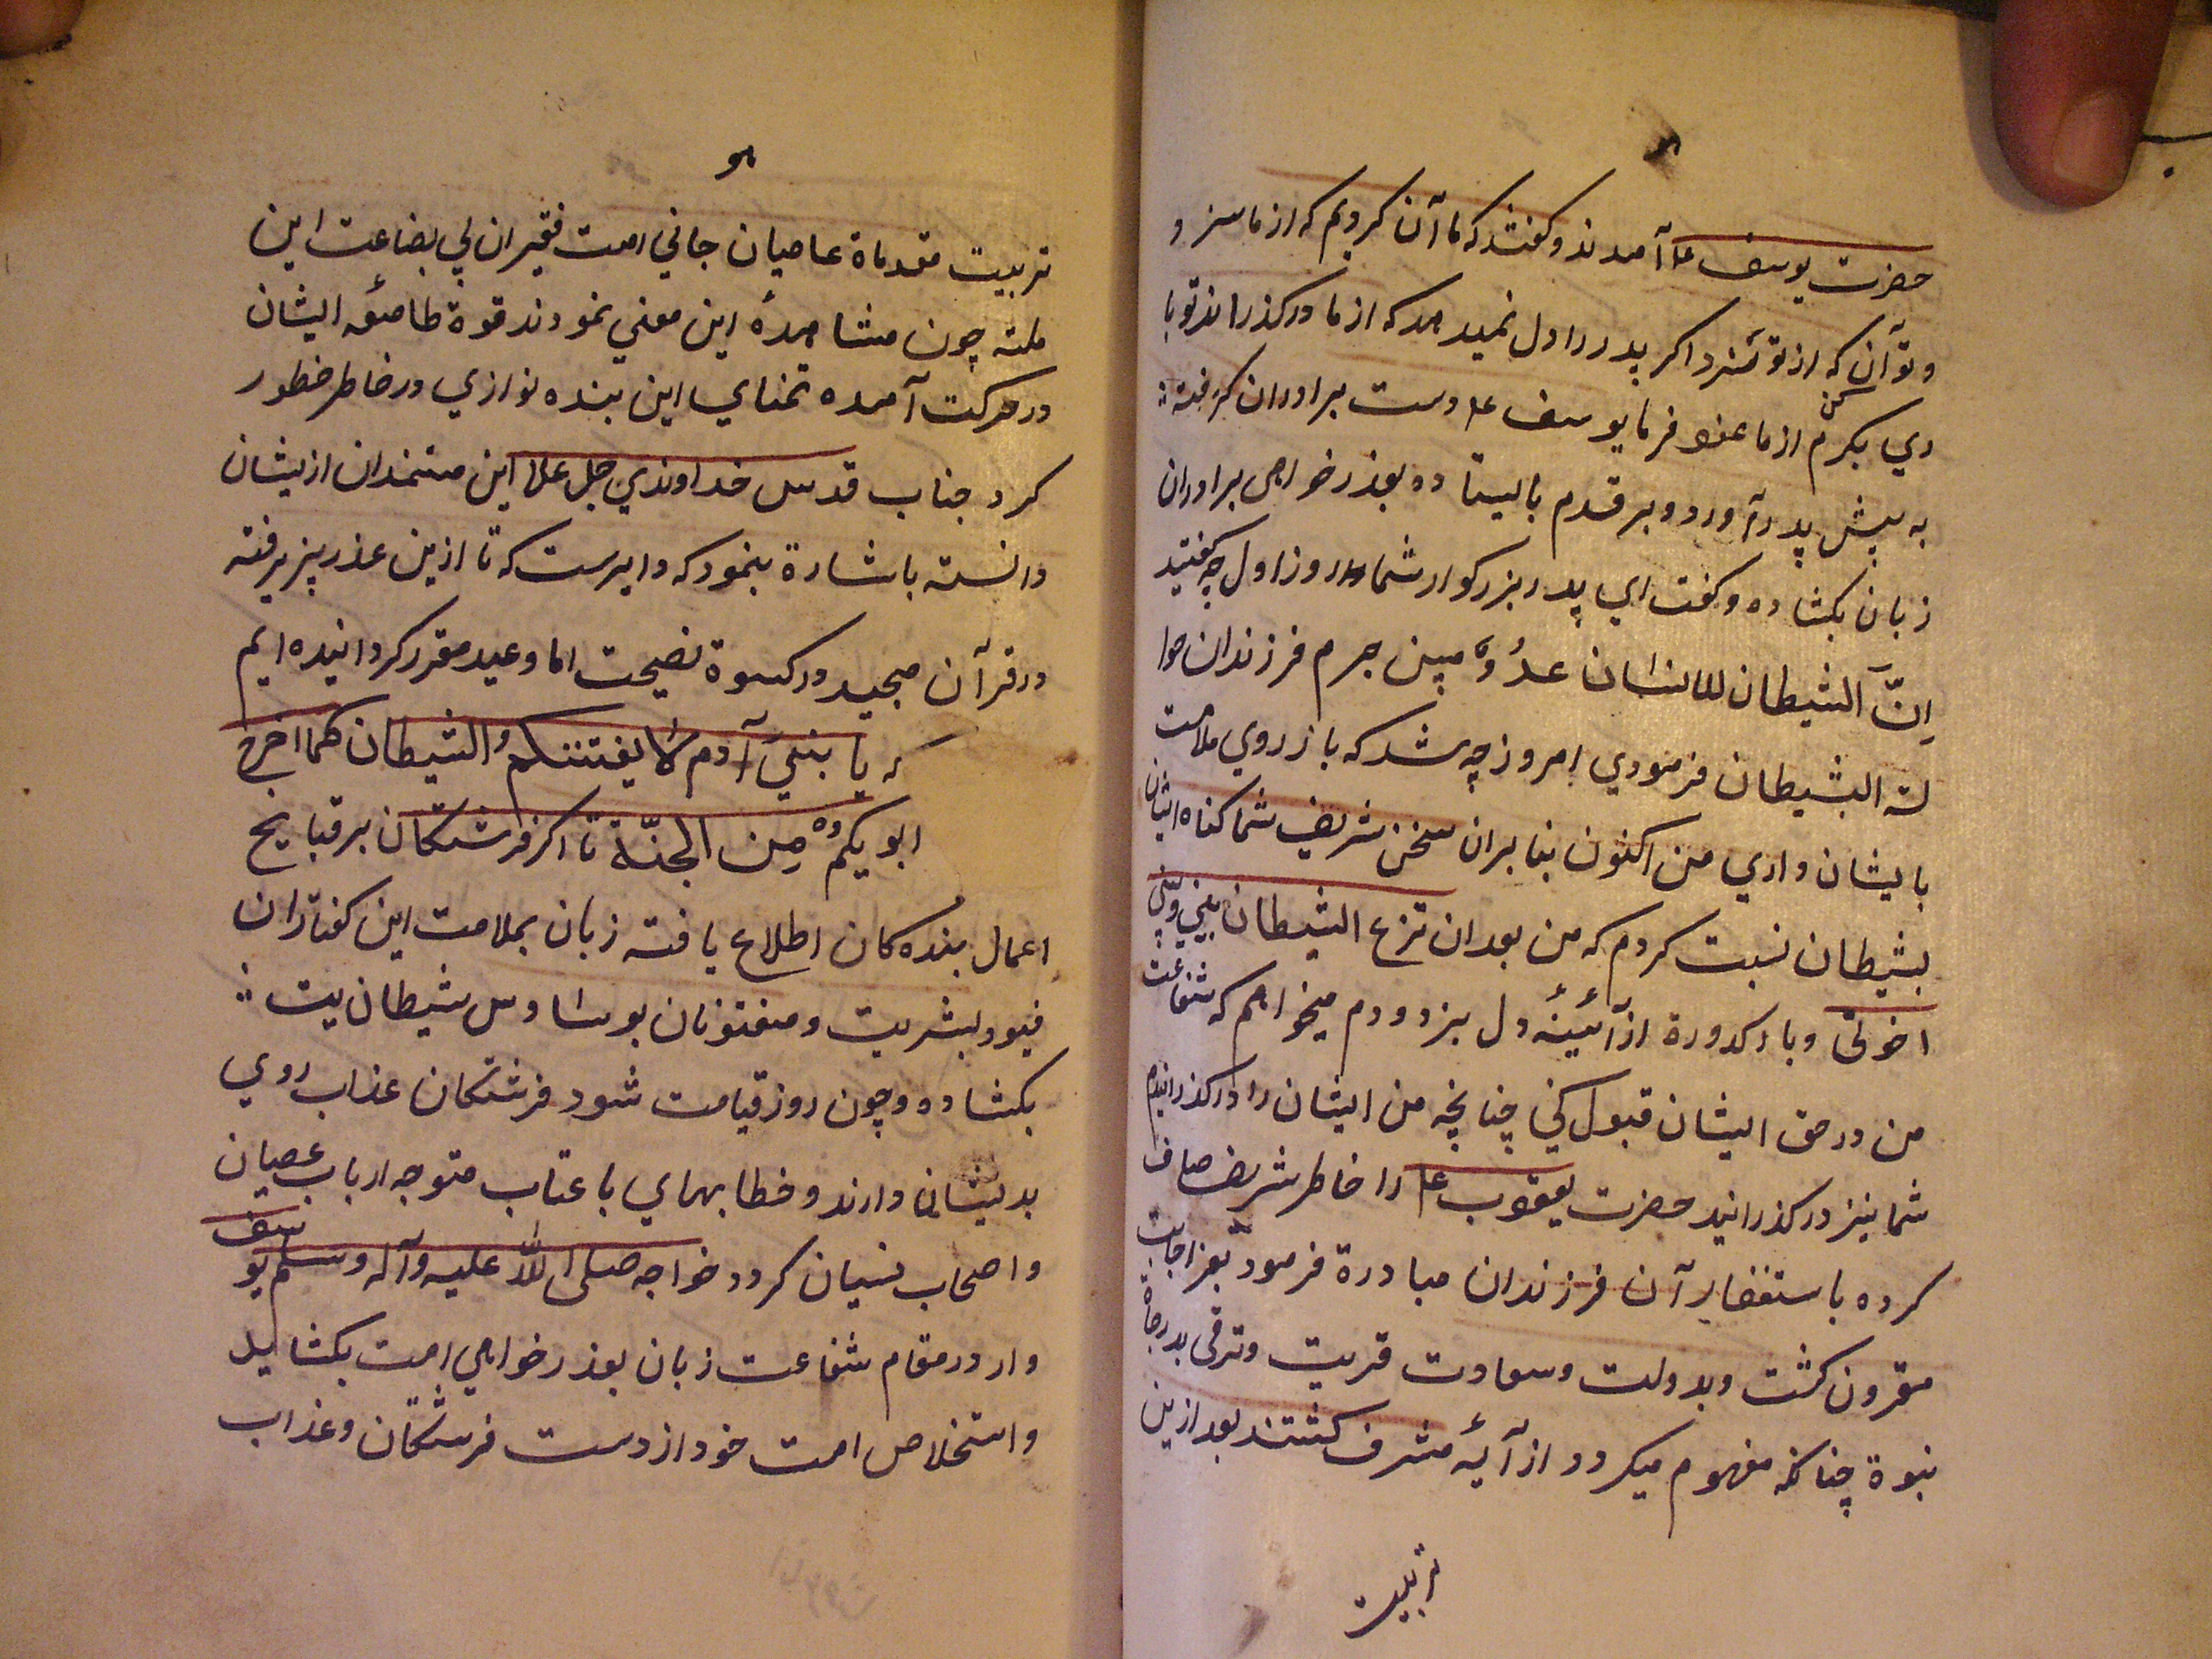 هو
حضرت یوسف ع آمدند و کفتند که ما آن کردیم که از ما سزد
و تو آن کن که از تو سزد اکر پدر را دل نمیدهد که از ما درکذراند تو با
دي بکرم از ما عفو فرما یوسف ع دست براوران کرفته
به پیش پدر آورد و بر قدم بایستاده بعذر خواهی براوران
زبان بکشاده وکفت اي پدر بزرکوار شما در روز اول چه کفتید
اِنّ الشیطان للانسان عدُوّ مبین جرم فرزندان حوا
لة الشیطان فرمودي امروز چه شد که باز روي ملامت
بایشان داري من اکنون بنابران سخن شریف شما کناه ایشان
بشیطان نسبت کردم که من بعد ان نزغ الشیطان بیني وبین
اخوتی و با کدورة از آئینهٔ دل بزدودم میخواهم که شفاعت
من در حق ایشان قبول کني چنانچه من ایشان را درکذرانیدم
شما نیز درکذرانید حضرت یعقوب ع را خاطر شریف صاف
کرده باستغفار آن فرزندان مبادرة فرمود بعز اجابت
مقرون کشت وبدولت وسعادت قربت وترقی بدرجاة
نبوة چنانکه مفهوم میکردد از آیهٔ مشرف کشتند بعد ازین
تربیت
هو
تربیت مقدماة عاصیان جاني امت فقیران بي بضاعت این
ملته چون مشاهدهٔ این معني نمودند قوة طامعه ایشان
در حرکت آمده تمناي این بنده نوازي در خاطر خطور
کرد جناب قدس خداوندي جل علا این مستمندان ازیشان
دانسته باشارة بنمود که دایرست که تا ازین عذر پزیرفته
در قرآن مجید در کسوة نصیحت اما وعید مقرر کردانیده ایم
که یا بنيَ آدم لا یفتننکمُ الشیطان کما اخرج
ابویکم مِن الجنّة تا اکر فرشتکان بر قبایح
اعمال بنده کان اطلاع یافته زبان بملامت این کفتاران
قیود بشریت ومفتونان بوساوس شیطان یت
بکشاده وچون روز قیامت شود فرشتکان عذاب روي
بدیشان دارند وخطابهاي با عتاب متوجه ارباب عصیان
واصحاب نسیان کردد خواجه صلی الله علیه وآله وسلم یوسف
وار در مقام شفاعت زبان بعذر خواهي امت بکشاید
واستخلاص امت خود از دست فرشتکان وعذاب